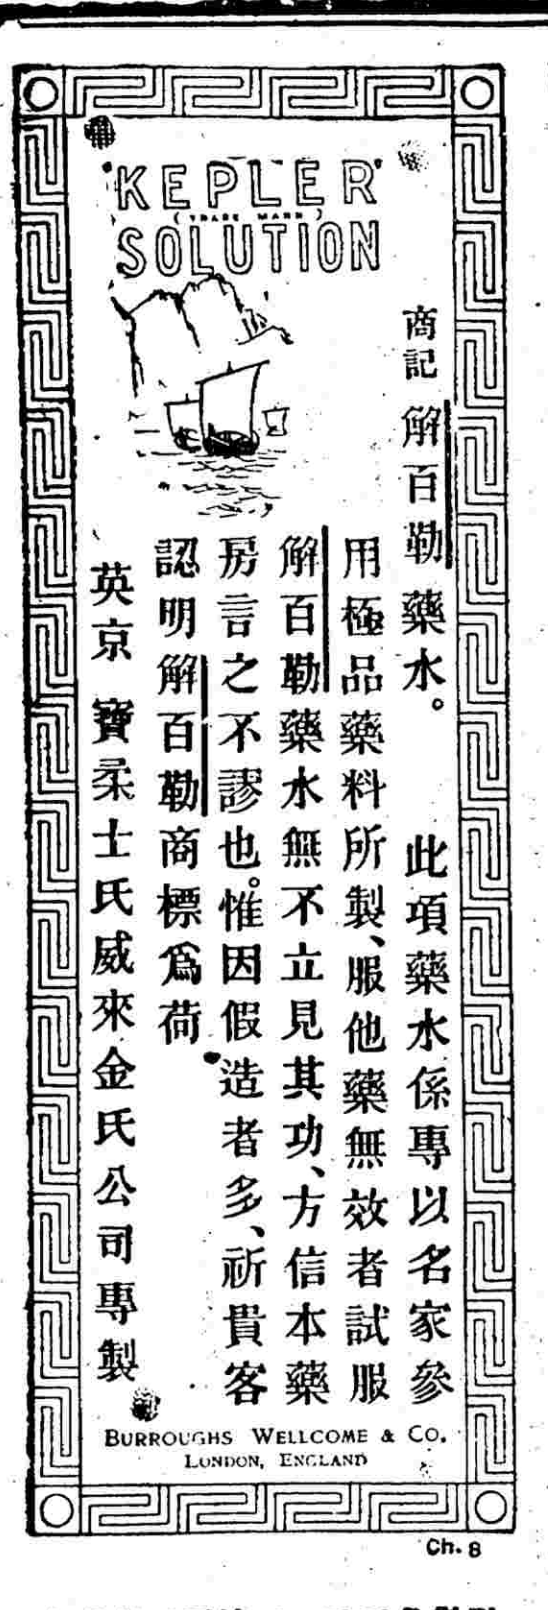 'KEPLER'
(TRADE MARK)
SOLUTION
商記 解百勒藥水。 此項藥水係專以名家參
用極品藥料所製、服他藥無效者試服
解百勒藥水無不立見其功、方信本藥
房言之不謬也。惟因假造者多、祈貴客
認明解百勒商標爲荷
英京 寶柔士氏威來金氏公司專製
BURROUGHS WELLCOME & CO.
LONDON, ENGLAND
Ch. 8